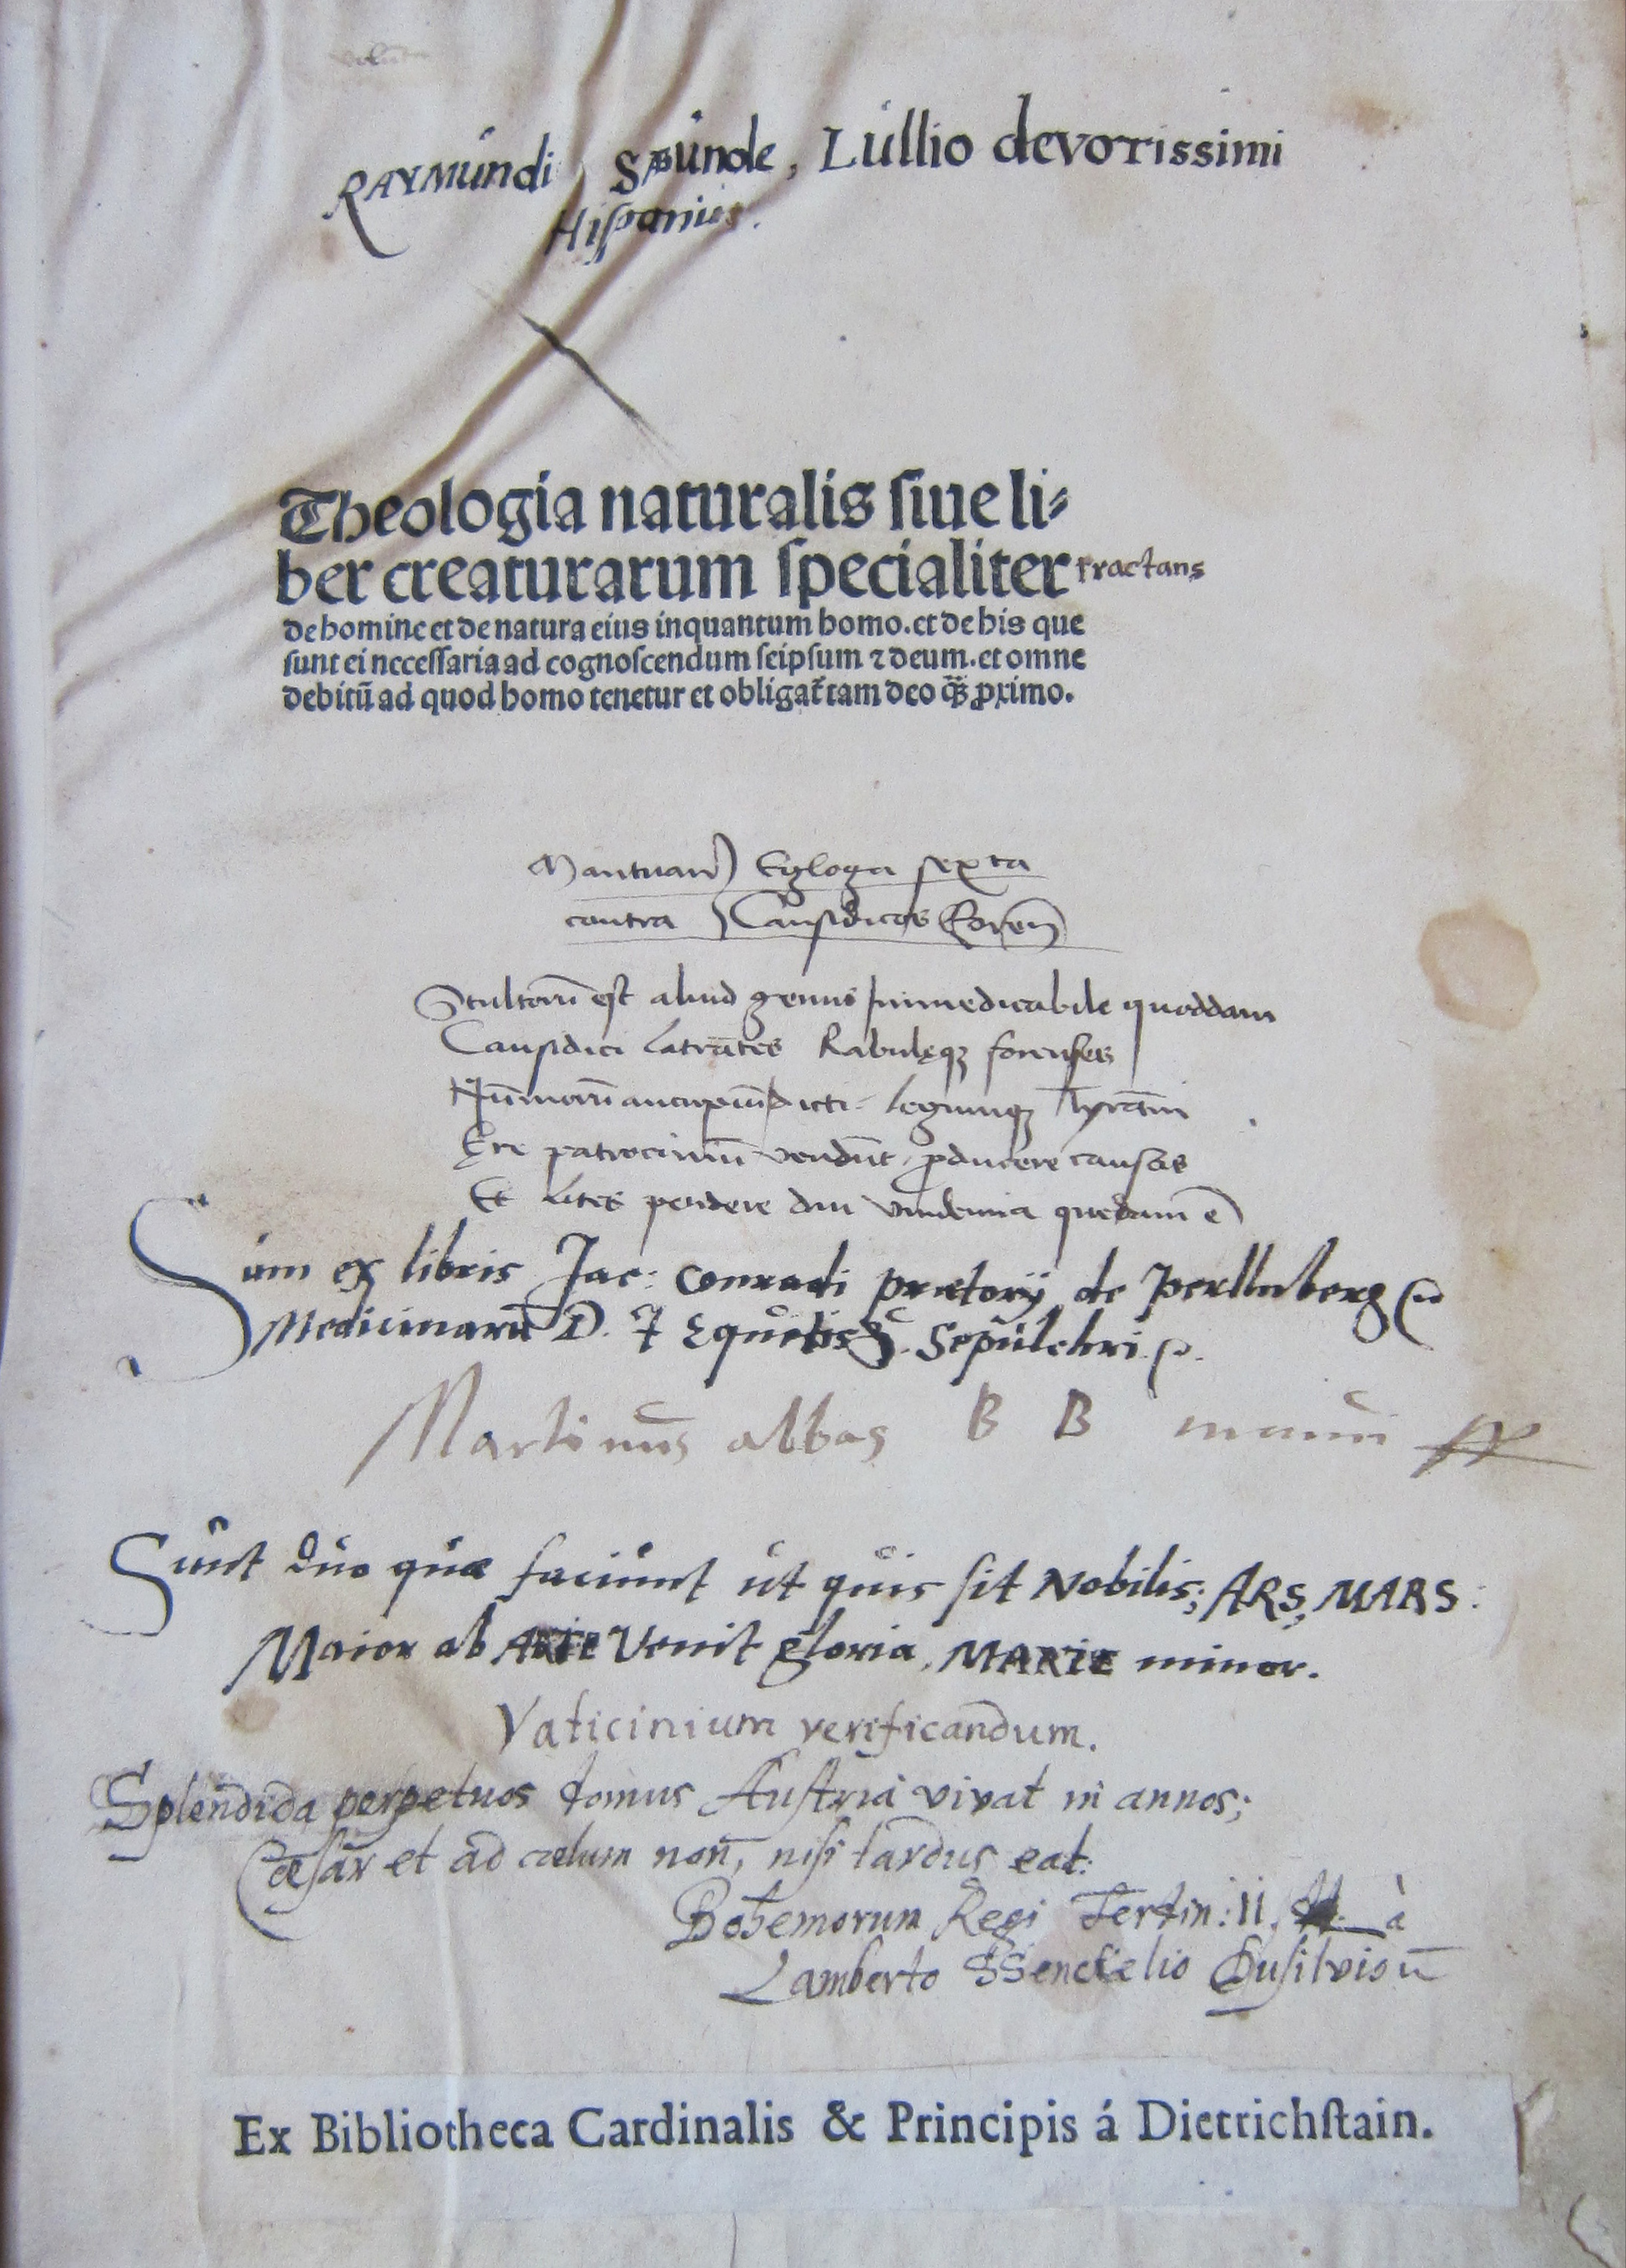 RAYMundi SABunde, Lullio devotissimi
Hispanus.
Theologia naturalis siue li-
ber creaturarum specialiter tractans
de homine et de natura eius inquantum homo. et de his que
sunt ei necessaria ad cognoscendum seipsum ⁊ deum. et omne
debitū ad quod homo tenetur et obligat᷑ tam deo q̈ꝫ ꝓximo.
Mantuani Egloga sexta
contra Causidicos
Stultorū est aliud genus immedicabile quoddam
Causidici latrātes Rabulęqꝫ forenses
Nūmorū aucupiū dicti legumqꝫ Tyrāni
Ęre patrociniū vendūt, ꝓducere causas
Et lites pendere diu vindemia quedam ē
Sum ex libris Jac: Conradi prætorij de Perllnberg
Medicinarū D. & Equitis S. Sepulchri.
Martinus abbas B B manu
Sunt duo quæ faciunt ut quis sit Nobilis; ARS, MARS:
Maior ab ARTE Venit gloria, MARTE minor.
Vaticinium verificandum.
Splendida perpetuos domus Austria vivat in annos;
Cæsar et ad cælum non, nisi tardus eat.
Bohemorum Regi Ferdin: II. à
Lamberto Dusilvio
Ex Bibliotheca Cardinalis & Principis á Dietrichstain.